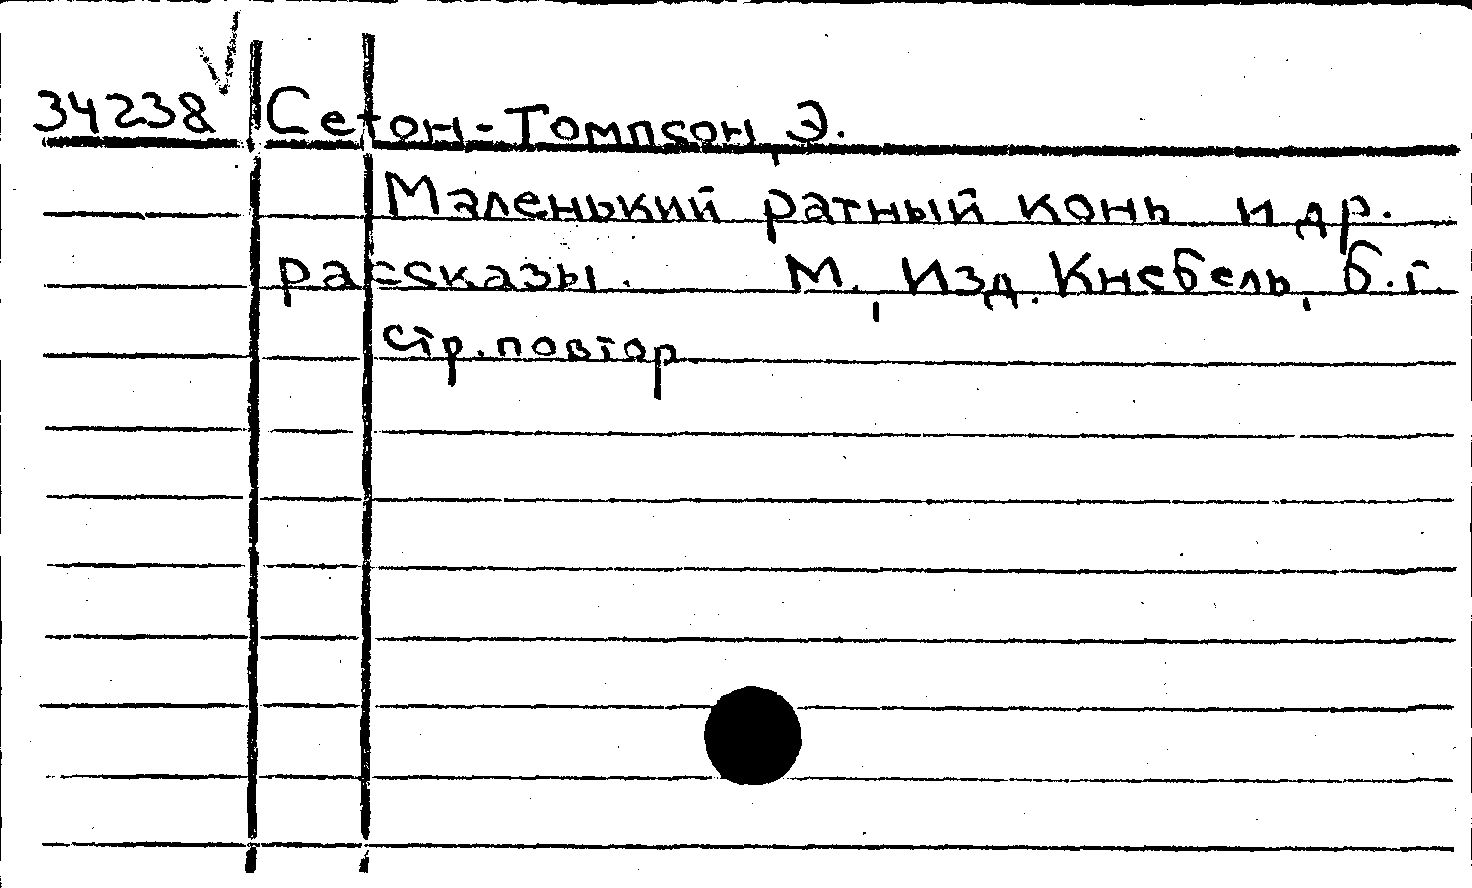 34238 Сетон-Томпсон, Э.
Маленький ратный конь и др.
рассказы. М., Изд. Кнебель, б.г.
стр. повтор